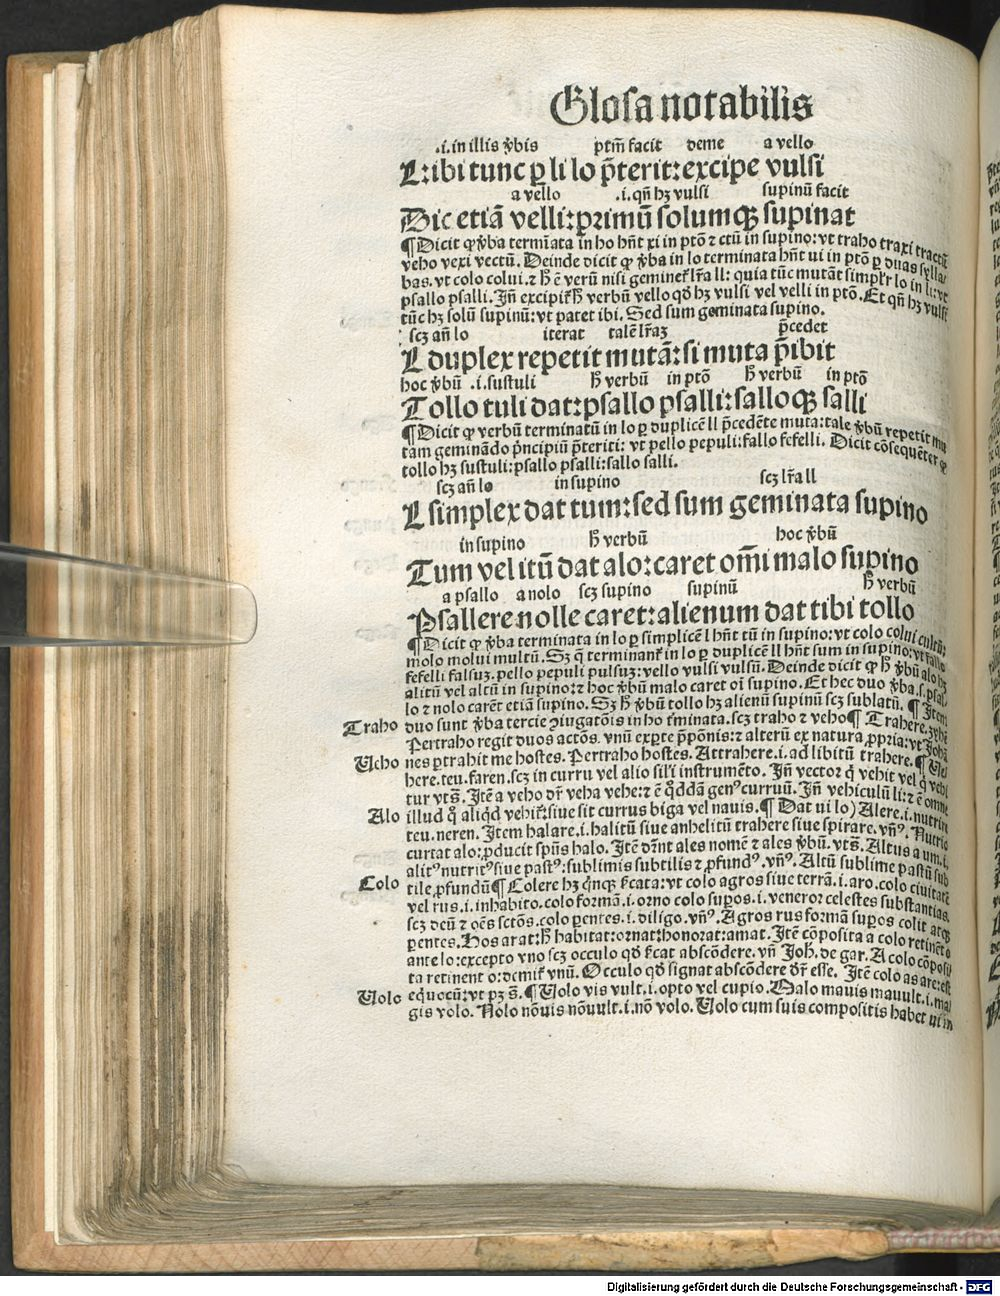 Glosa notabilis
.i. in illis v̓bis ptm̄ facit deme a vello
L: ibi tunc ꝑ li lo p̄terit: excipe vulsi
a vello .i. qn̄ hꝫ vulsi supinū facit
Dic etiā velli: primū solumqꝫ supinat
¶ Dicit ꝙ v̓ba termīata in ho hn̄t xi in ptō ⁊ ctū in supino: vt traho traxi tractū
veho vexi vectū. Deinde dicit ꝙ v̓ba in lo terminata hn̄t ui in ptō ꝑ duas sylla/
bas. vt colo colui. ⁊ h̄ ē verū nisi geminet̉ lr̄a ll: quia tūc mutāt simplr̓ lo in li: vt
psallo psalli. Jn̄ excipit̉ h̄ verbū vello qd̓ hꝫ vulsi vel velli in ptō. Et qn̄ hꝫ vulsi
tūc hꝫ solū supinū: vt patet ibi. Sed sum geminata supino.
scꝫ an̄ lo iterat talē lr̄aꝫ p̄cedet
L duplex repetit mutā: si muta p̄ibit
hoc v̓bū .i. sustuli h̄ verbū in ptō h̄ verbū in ptō
Tollo tuli dat: psallo psalli: salloqꝫ salli
¶ Dicit ꝙ verbū terminatū in lo ꝑ duplicē ll p̄cedēte muta: tale v̓bū repetit mu
tam geminādo pͥncipiū p̄teriti: vt pello pepuli: fallo fefelli. Dicit cōsequēter ꝙ
tollo hꝫ sustuli: psallo psalli: sallo salli.
scꝫ an̄ lo in supino scꝫ lr̄a ll
L simplex dat tum: sed sum geminata supino
in supino h̄ verbū hoc v̓bū
Tum vel itū dat alo: caret om̄i malo supino
a psallo a nolo scꝫ supino supinū h̄ verbū
Psallere nolle caret: alienum dat tibi tollo
¶ Dicit ꝙ v̓ba terminata in lo ꝑ simplicē l hn̄t tū in supino: vt colo colui cultū:
molo molui multū. Sꝫ q̄ terminant̉ in lo ꝑ duplicē ll hn̄t sum in supino: vt fallo
fefelli falsuꝫ. pello pepuli pulsuꝫ: vello vulsi vulsū. Deinde dicit ꝙ h̄ v̓bū alo hꝫ
alitū vel altū in supino: ⁊ hoc v̓bū malo caret oī supino. Et hec duo v̓ba .s. psal
lo ⁊ nolo carēt etiā supino. Sꝫ h̄ v̓bū tollo hꝫ alienū supinū scꝫ sublatū. ¶ Item
Traho duo sunt v̓ba tercie ꝯiugatōis in ho t̓minata. scꝫ traho ⁊ veho ¶ Trahere.
Pertraho regit duos actōs. vnū ex ꝑte p̄pōnis: ⁊ alterū ex natura ꝓpria: vt Johā
Veho nes ꝑtrahit me hostes. Pertraho hostes. Attrahere .i. ad libitū trahere. ¶ Ve/
here. teu. faren. scꝫ in curru vel alio sil̓i instrumēto. Jn̄ vector qͥ vehit vel qͥ vehi
tur vtꝫ. Jtē a veho dr̄ veha vehe: ⁊ ē q̄ddā genꝰ curruū. Jn̄ vehiculū li: ⁊ ē omne
Alo illud qͦ aliqd̓ vehit̉: siue sit currus biga vel nauis. ¶ Dat ui lo) Alere .i. nutrire
teu. neren. Jtem halare .i. halitū siue anhelitū trahere siue spirare. vn̄ꝰ. Nutrio
curtat alo: ꝓducit spūs halo. Jtē dr̄nt ales nomē ⁊ ales v̓bū. vtꝫ. Altus a um .i.
alitꝰ nutritꝰ siue pastꝰ: sublimis subtilis ⁊ ꝓfundꝰ. vn̄ꝰ. Altū sublime pastū sub
Colo tile ꝓfundū ¶ Colere hꝫ qͥnqꝫ s̓cata: vt colo agros siue terrā .i. aro. colo ciuitatē
vel rus .i. inhabito. colo formā .i. orno colo supos .i. veneror celestes substantias.
scꝫ deū ⁊ oēs sctōs. colo ꝑentes .i. diligo. vn̄ꝰ. Agros rus formā supos colit atqꝫ
ꝑentes. Hos arat: h̄ habitat: ornat: honorat: amat. Jtē cōposita a colo retinēt o
ante lo: excepto vno scꝫ occulo qd̓ s̓cat abscōdere. vn̄ Joh̄. de gar. A colo cōposi
ta retinent o: demit̉ vnū. Occulo qd̓ signat abscōdere dr̄ esse. Jtē colo as are: est
Volo equocū: vt pꝫ s̄. ¶ Volo vis vult .i. opto vel cupio. Malo mauis mauult .i. ma/
gis volo. Nolo nōuis nōuult .i. nō volo. Volo cum suis compositis habet ui in
Digitalisierung gefördert durch die Deutsche Forschungsgemeinschaft - DFG